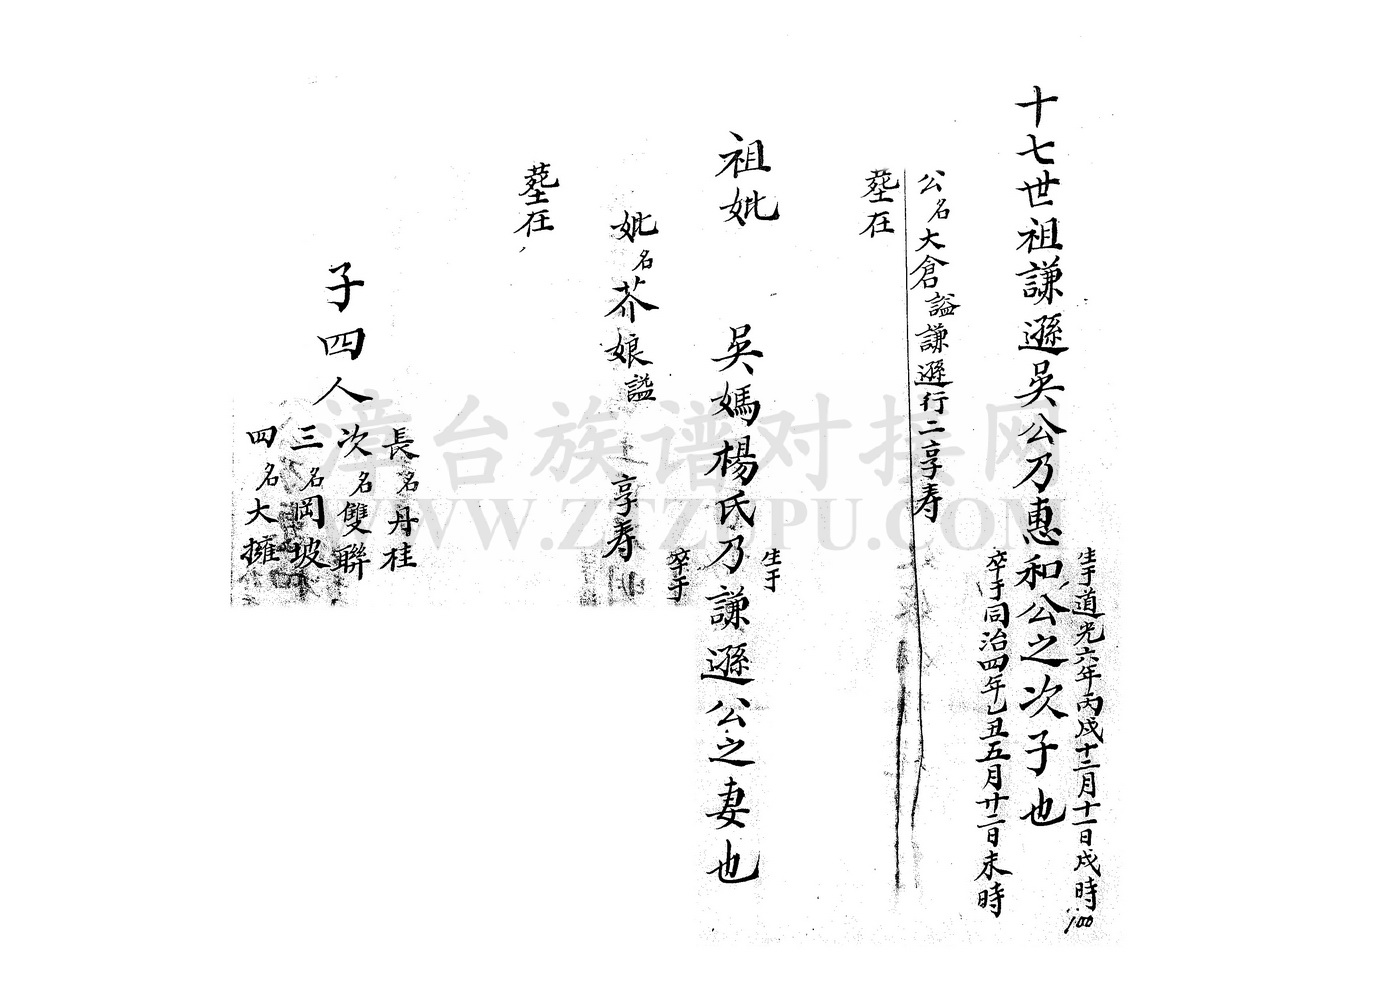 十七世祖謙遜吳公乃惠和公之次子也
生于道光六年丙戍十二月十一日戍時
100
卒于同治四年乙丑五月廿二日未時
公名大倉謚謙遜行二享寿
塟在
祖妣 吳媽楊氏乃謙遜公之妻也
生于
卒于
妣名芥娘謚 享寿
塟在
子四人
長名丹桂
次名雙聯
三名岡坡
四名大擁
漳台族谱对接网
WWW.ZTZUPU.COM